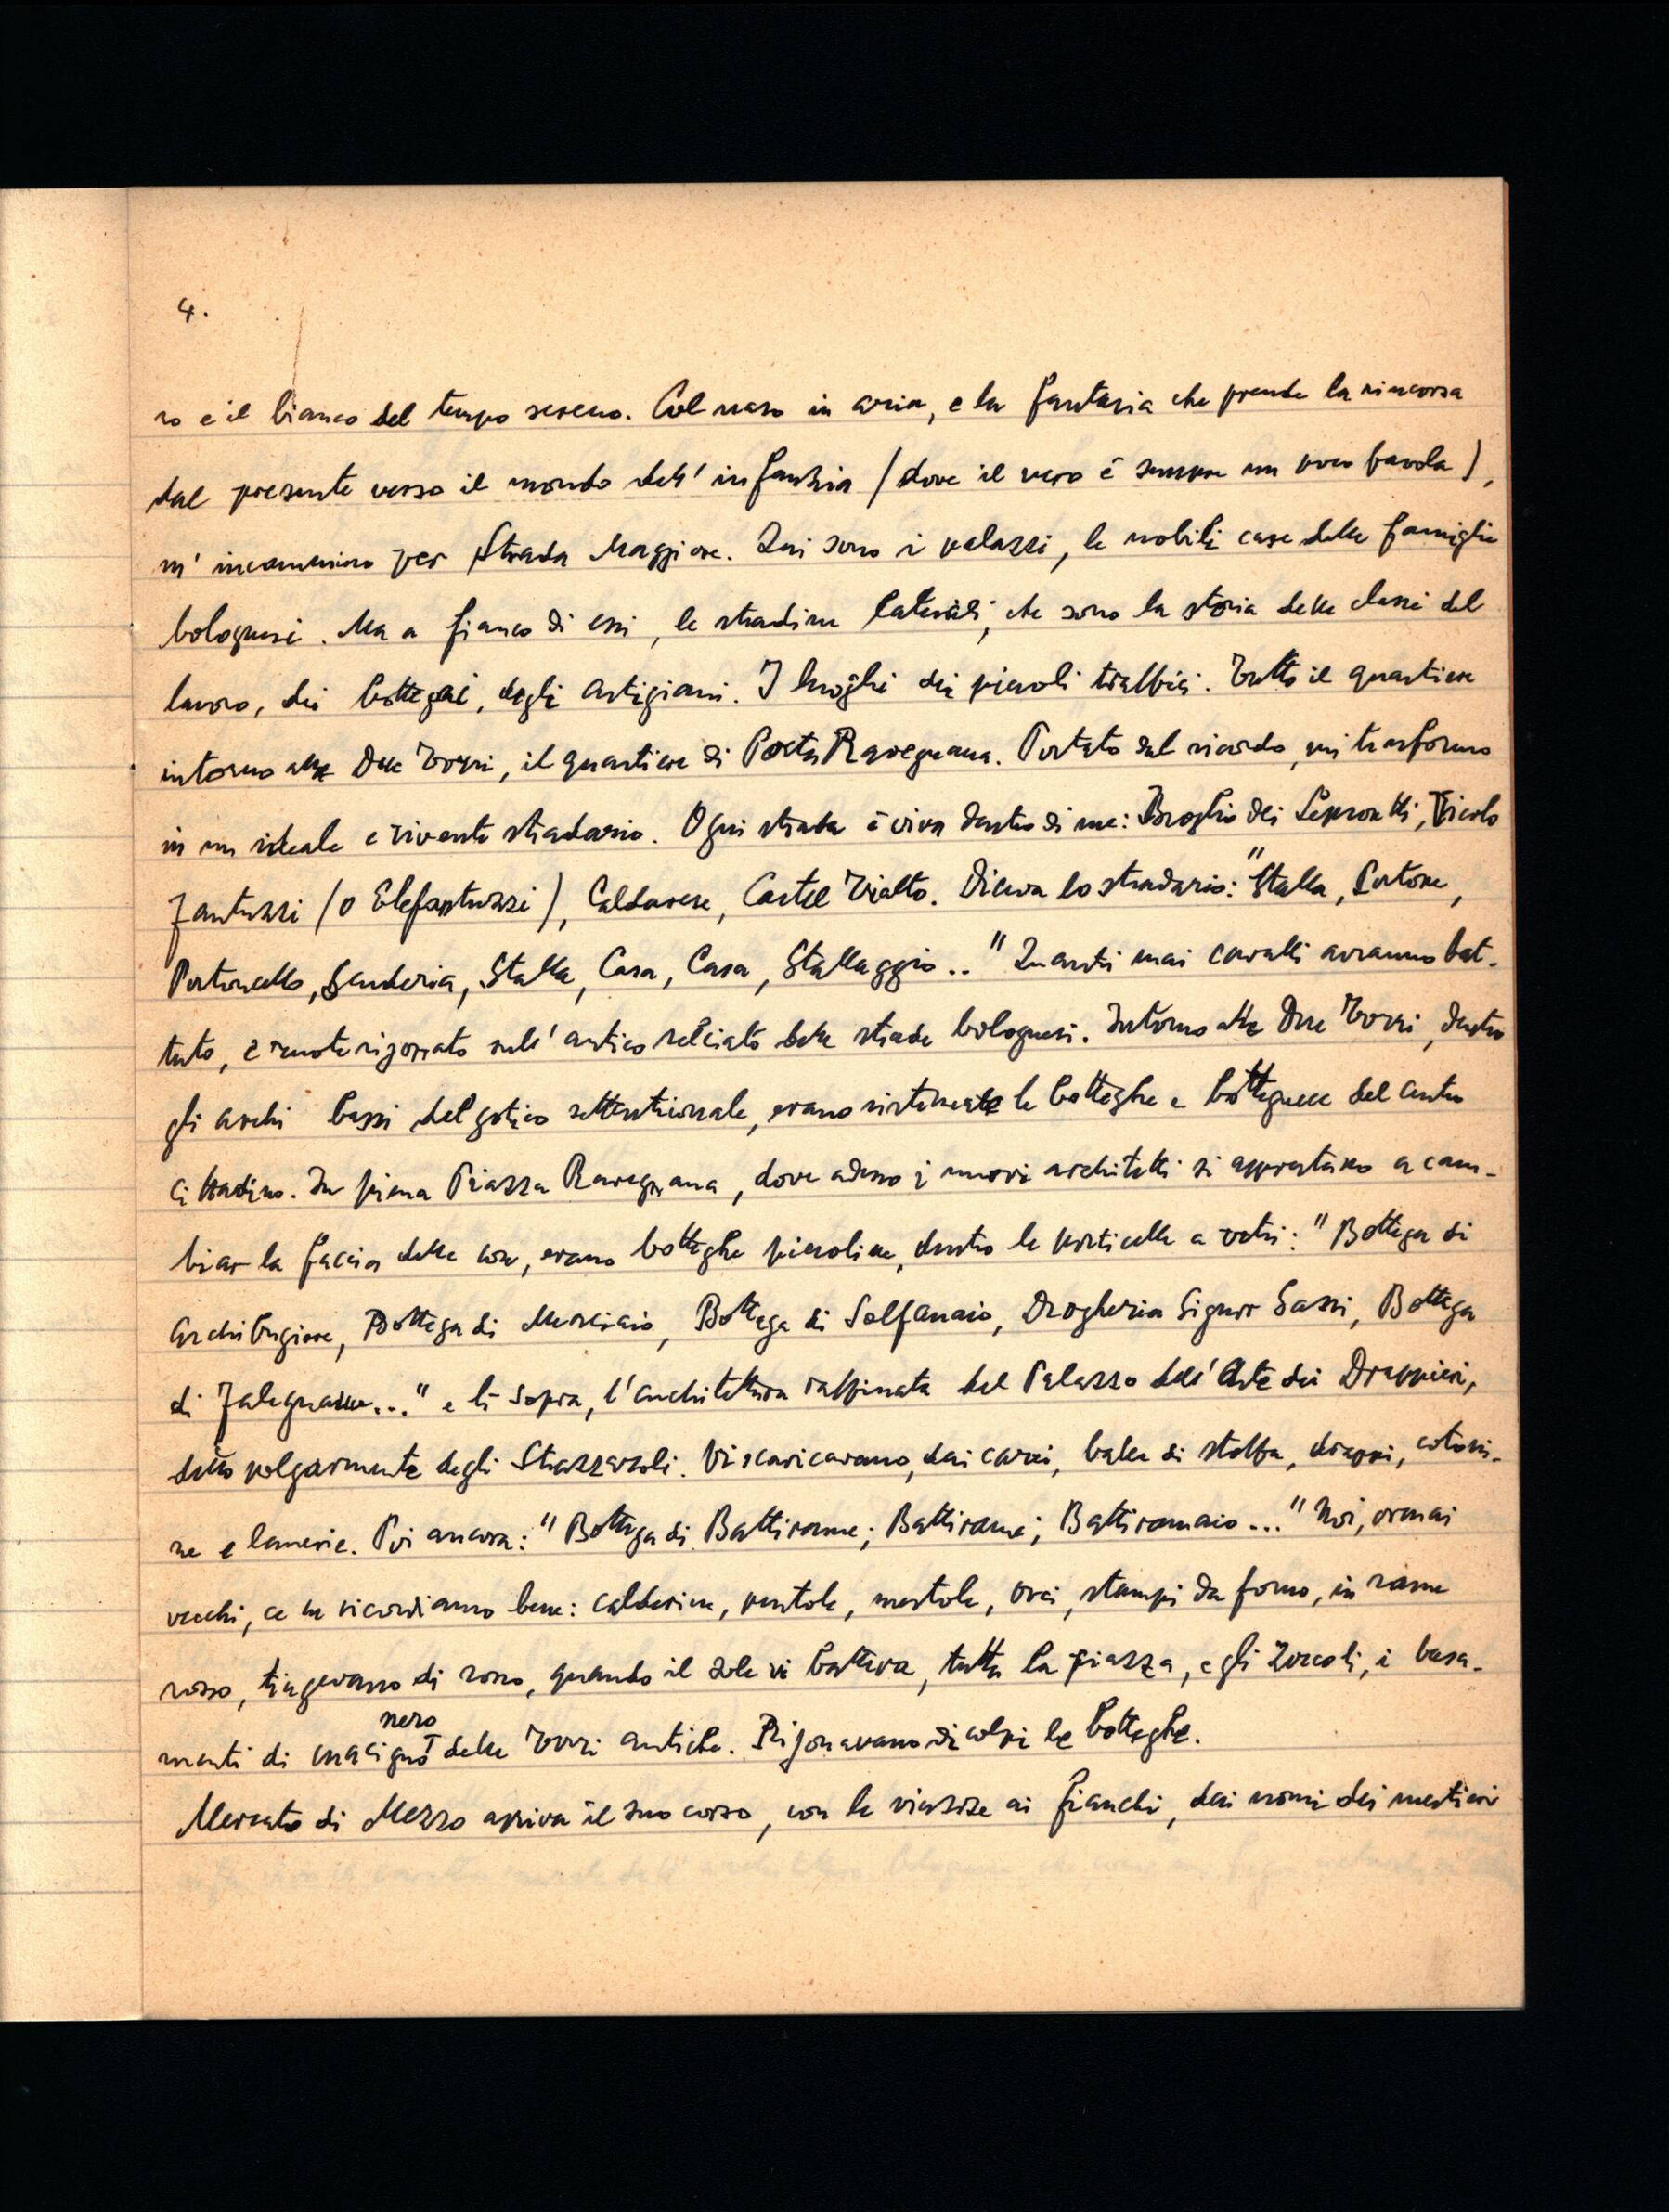 4.
ro e il bianco del tempo sereno. Col naso in aria, e la fantasia che prende la rincorsa
dal presente verso il mondo dell'infanzia (dove il vero è sempre un poco favola),
m'incammino per Strada Maggiore. Qui sono i palazzi, le nobili case delle famiglie
bolognesi. Ma a fianco di essi, le stradine laterali, che sono la storia delle classi del
lavoro, dei bottegai, degli artigiani. I luoghi dei piccoli traffici. Tutto il quartiere
intorno alle Due Torri, il quartiere di Porta Ravegnana. Portato dal ricordo, mi trasformo
in un ideale e vivente stradario. Ogni strada è viva dentro di me: Broglio dei Leprosetti, Vicolo
Fantuzzi (o Elefantuzzi), Caldarese, Castel Tialto. Diceva lo stradario: "Stalla, Portone,
Portoncello, Scuderia, Stalla, Casa, Casa, Stallaggio.." Quanti mai cavalli avranno bat-
tuto, e ruote rigonato sull'antico selciato delle strade bolognesi. Intorno alle Due Torri, dentro
gli archi bassi del gotico settentrionale, erano sistemate le botteghe e botteguccie del centro
cittadino. In piena Piazza Ravegnana, dove adesso i nuovi architetti si apprestano a cam-
biar la faccia delle cose, erano botteghe piccoline, dentro le porticelle a vetri: "Bottega di
Archibugiere, Bottega di Merciaio, Bottega di Solfanaio, Drogheria Signor Sassi, Bottega
di Falegname..." e lì sopra, l'architettura raffinata del Palazzo dell'Arte dei Drappieri,
detto volgarmente degli Strazzaroli. Vi scaricavano, dai carri, balle di stoffa, drappi, cotoni-
ne e lanerie. Poi ancora: "Bottega di Battirame; Battirame; Battiramaio..." Noi, ormai
vecchi, ce ne ricordiamo bene: calderine, pentole, mestole, orci, stampi da forno, in rame
rosso, tingevano di rosso, quando il sole vi batteva, tutta la piazza, e gli zoccoli, i basa-
nero
menti di macigno delle Torri antiche. Risonavano di colpi le botteghe.
Mercato di Mezzo apriva il suo corso, con le viuzze ai fianchi, dai nomi dei mestieri